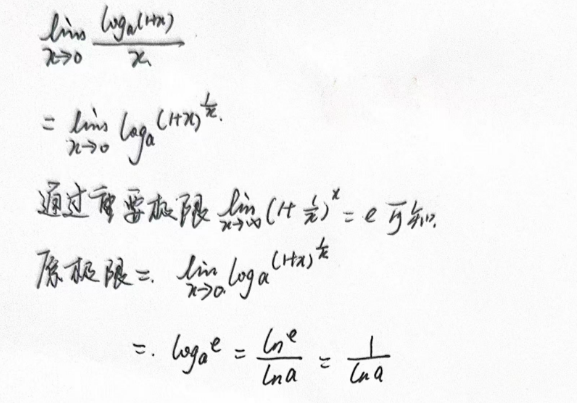 lim_{x→0} log_a(1+x) / x
= lim_{x→0} log_a (1+x)^{1/x}.
通过重要极限 lim_{x→∞} (1+1/x)^x = e 可知.
原极限 = lim_{x→0} log_a (1+x)^{1/x}
= log_a e = ln e / ln a = 1 / ln a